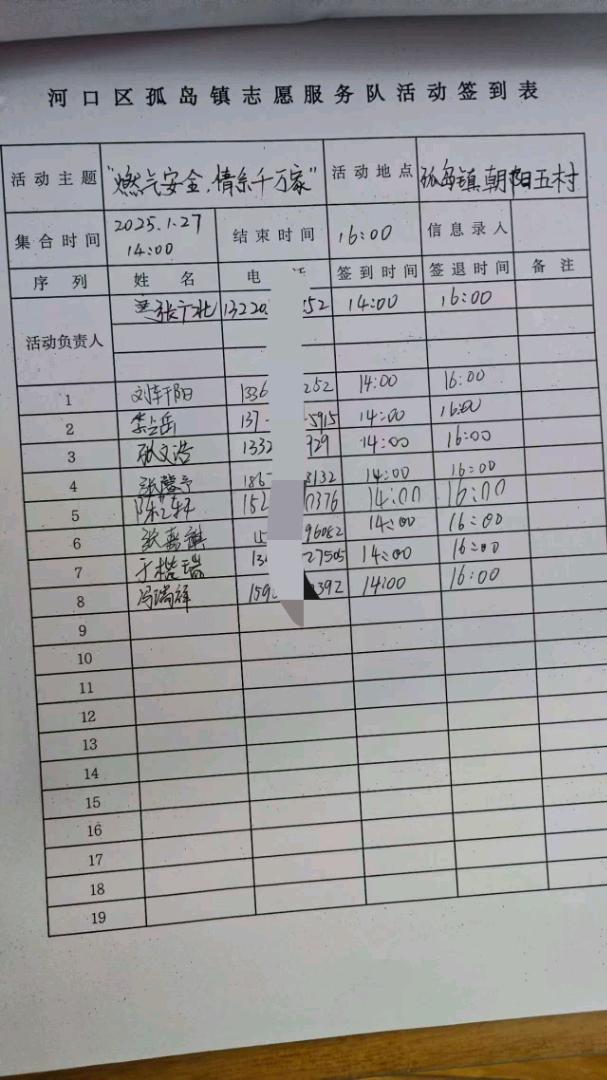 河口区孤岛镇志愿服务队活动签到表
活动主题 "燃气安全,情系千万家" 活动地点 孤岛镇朝阳五村
集合时间 2025.1.27 14:00 结束时间 16:00 信息录入
序列 姓名 电话 签到时间 签退时间 备注
活动负责人 张广北 13220 52 14:00 16:00
1 刘轩阳 1336 252 14:00 16:00
2 李岳 137 5915 14:00 16:00
3 张文浩 1332 929 14:00 16:00
4 张馨予 186 8132 14:00 16:00
5 152 0376 14:00 16:00
6 张嘉祺 15 96082 14:00 16:00
7 于楷瑞 13 27505 14:00 16:00
8 冯瑞祥 159 392 14:00 16:00
9
10
11
12
13
14
15
16
17
18
19